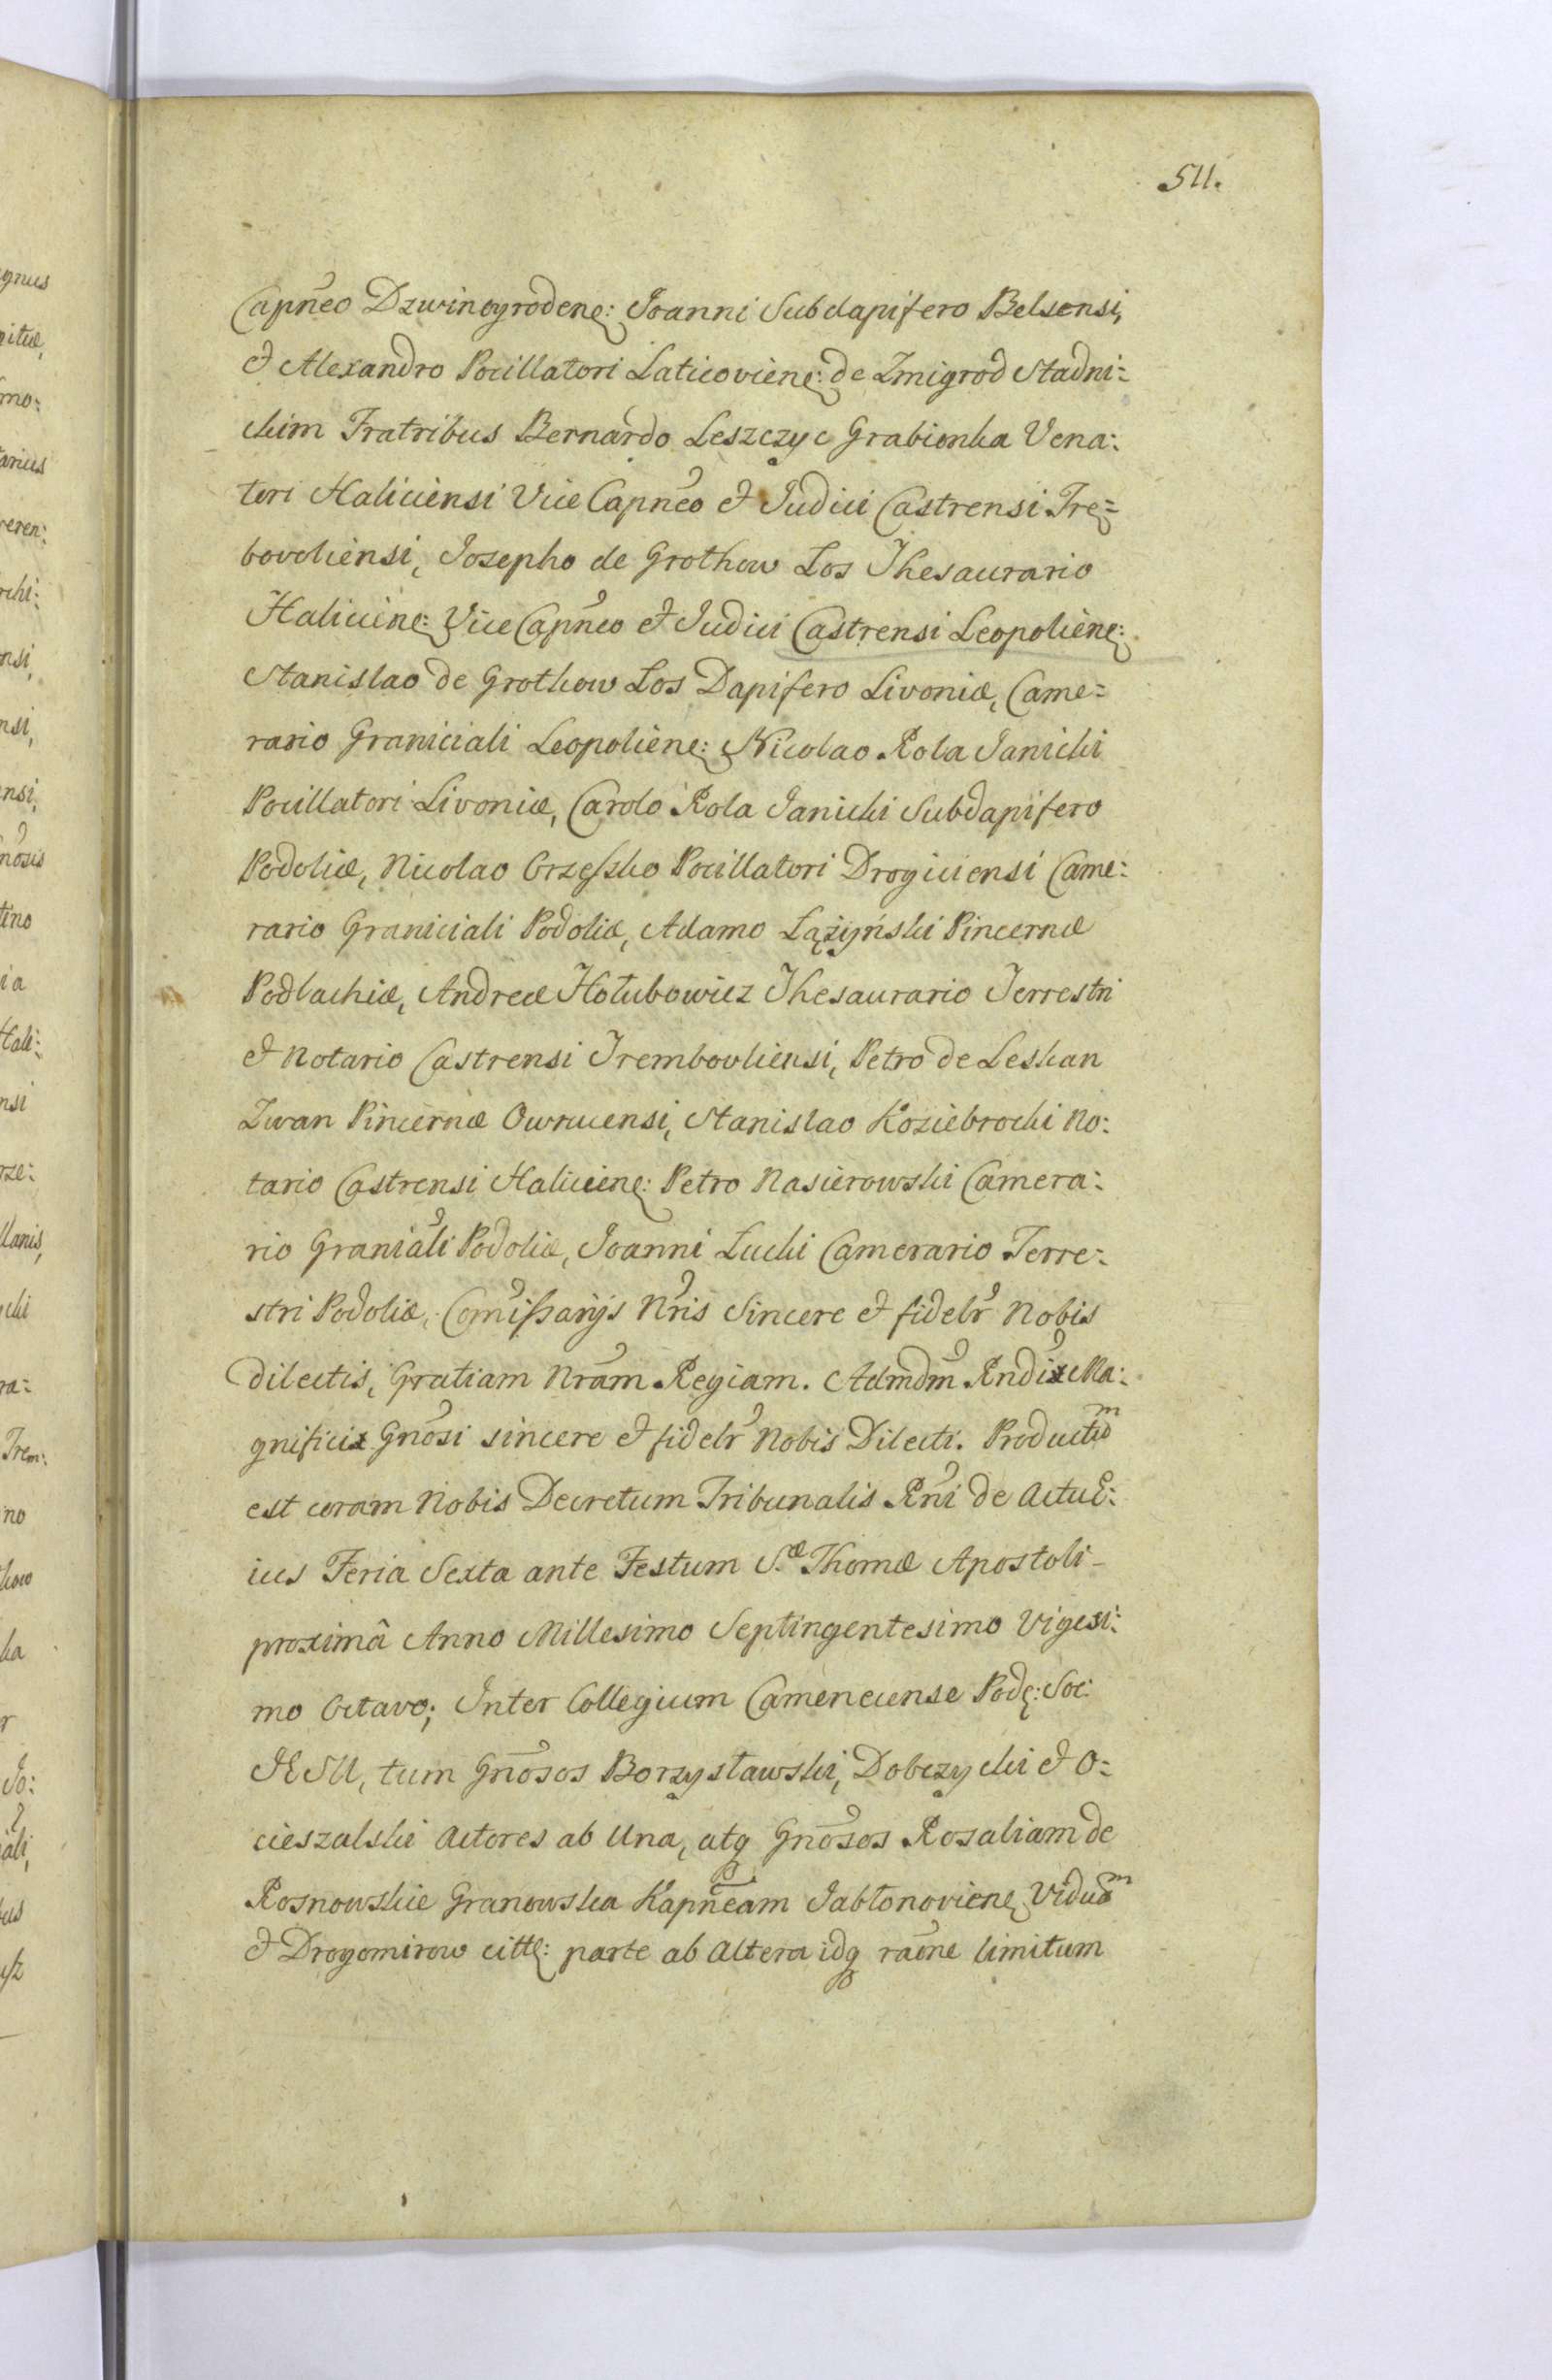 511.
Capn̄eo Dzwinogrodenę: Joanni Subdapifero Belzensi,
et Alexandro Pocillatori Laticovienę: de Zmigrod Stadni=
ckim Fratribus Bernardo Leszczyc Grabionka Vena:
tori Haliciensi Vice Capn̄eo et Judici Castrensi Tre=
bovoliensi, Josepho de Grothow Łos Thesaurario
Halicienę: Vice Capn̄eo et Judici Castrensi Leopolienę:
Stanislao de Grothow Łos Dapifero Livoniæ, Came=
rario Graniciali Leopolienę: Nicolao Rola Janicki
Pocillatori Livoniæ, Carolo Rola Janicki Subdapifero
Podoliæ, Nicolao Orzeszko Pocillatori Drogiciensi Came:
rario Graniciali Podoliæ, Adamo Łążyński Pincernæ
Podlachiæ, Andreæ Hołubowicz Thesaurario Terrestri
et Notario Castrensi Trembovliensi, Petro de Leskan
Zwan Pincernæ Owrucensi, Stanislao Koziebrocki No:
tario Castrensi Halicienę: Petro Nasierowski Camera:
rio Graniāli Podoliæ, Joanni Łucki Camerario Terre:
stri Podoliæ, Com̄issarijs Nr̄is Sincere et fidelr̄ Nobis
dilectis, Gratiam Nrām Regiam. Admdm̄ Rndi Ma:
gnifici Gnōsi sincere et fidelr̄ Nobis Dilecti. Productum
est coram Nobis Decretum Tribunalis Rn̄i de Actu E:
ius Feria Sexta ante Festum S.æ Thomæ Apostoli
proximâ Anno Millesimo Septingentesimo Vigesi:
mo Octavo; Inter Collegium Camenecense Podę: Soc:
JESU, tum Gnōsos Borzysławski, Dobczycki et O=
cieszalski Actores ab Una, atq Gnōsos Rozaliam de
Rosnowskie Granowska Kapn̄eam Jabłonovienę Viduam
et Drogomirow cittę: parte ab Altera idq raōne limitum